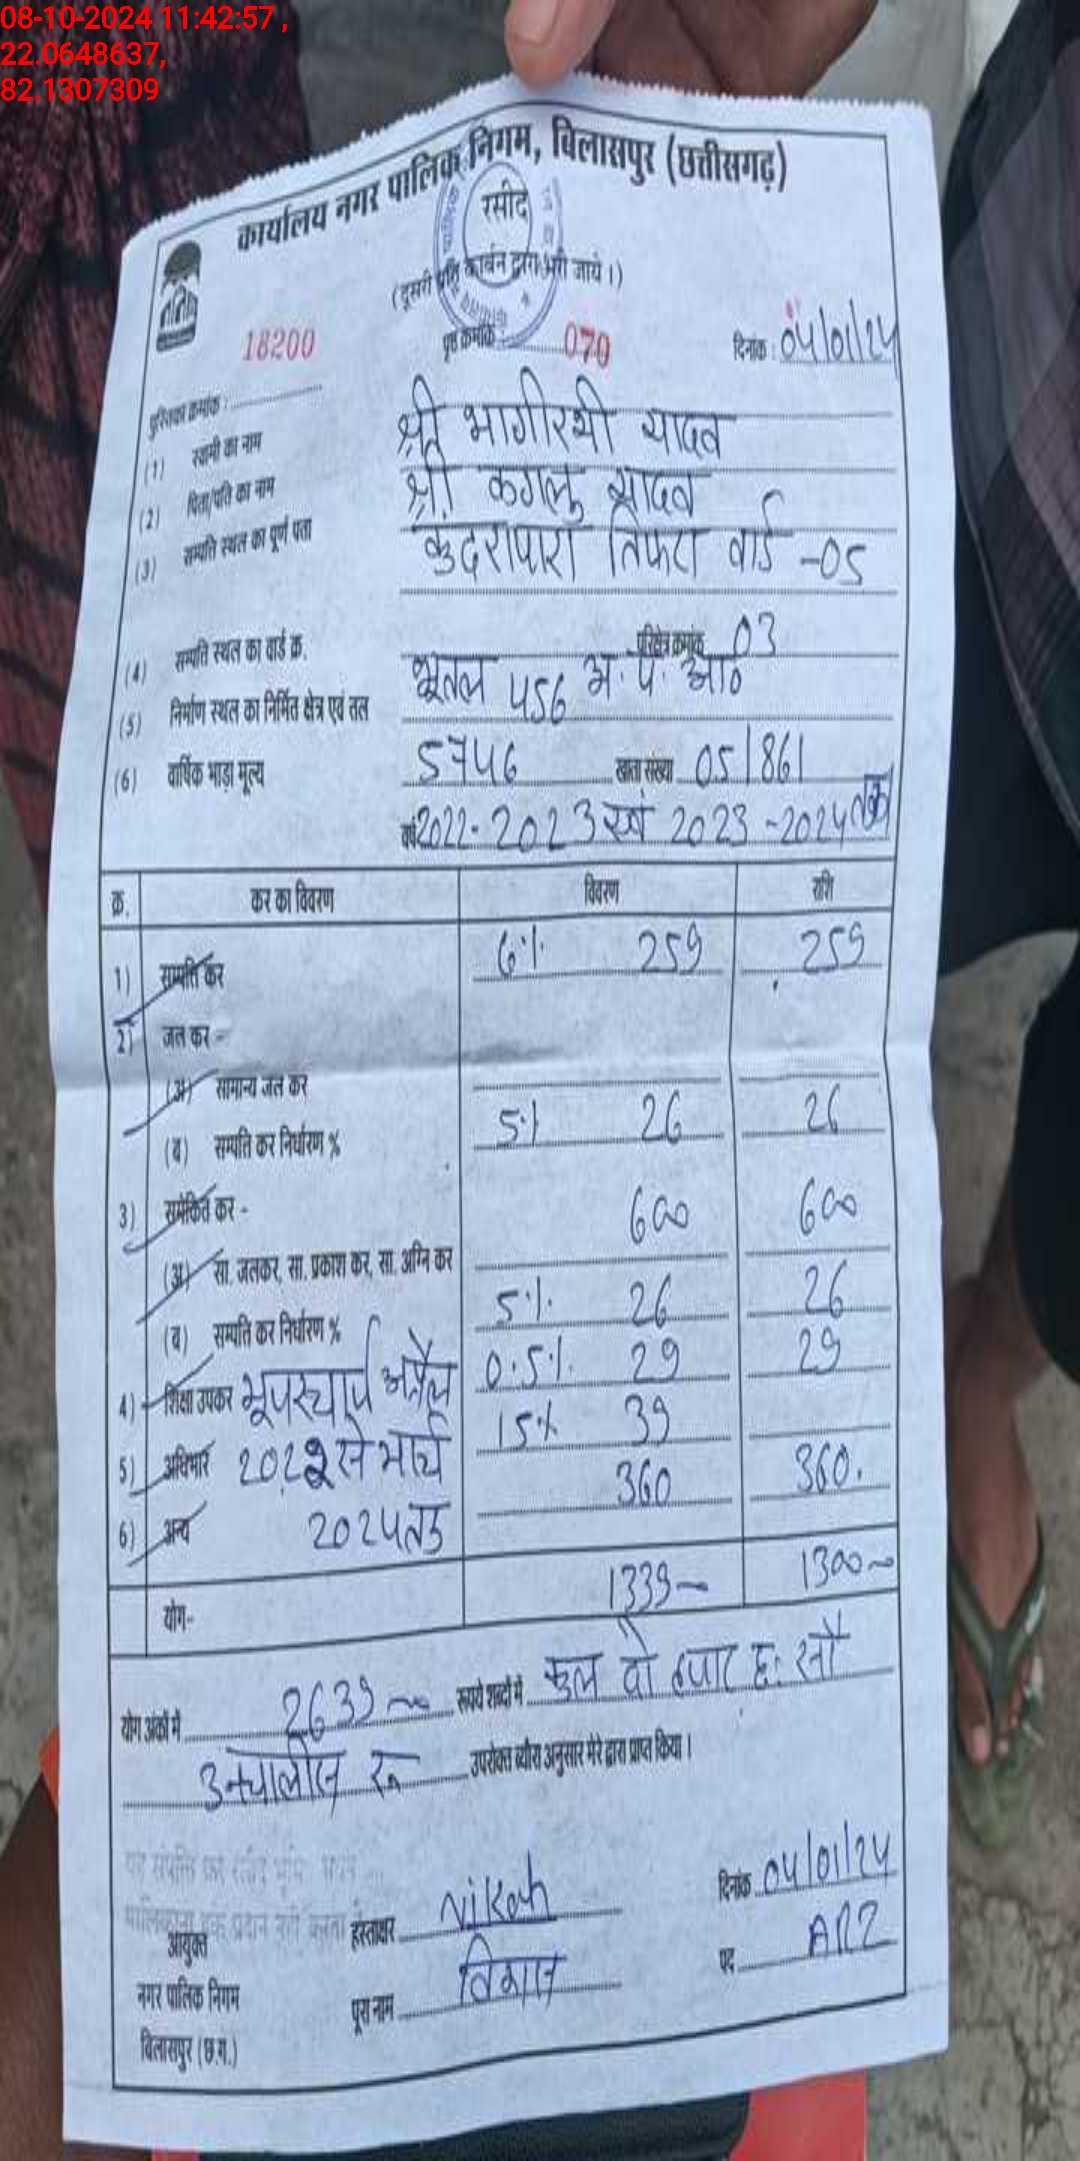 08-10-2024 11:42:57 ,
22.0648637,
82.1307309
कार्यालय नगर पालिक निगम, बिलासपुर (छत्तीसगढ़)
रसीद
(दूसरी प्रति कार्बन द्वारा भरी जाये।)
पुस्तिका क्रमांक : 18200 पृष्ठ क्रमांक 070 दिनांक : 04/01/24
(1) स्वामी का नाम श्री भागीरथी यादव
(2) पिता/पति का नाम श्री कगलु यादव
(3) सम्पत्ति स्थल का पूर्ण पता कुदरापारा तिफरा वार्ड -05
(4) सम्पत्ति स्थल का वार्ड क्र. परिक्षेत्र क्रमांक 03
(5) निर्माण स्थल का निर्मित क्षेत्र एवं तल भूतल 456 अ. प. आ०
(6) वार्षिक भाड़ा मूल्य 5746 खाता संख्या 05/861
वर्ष 2022-2023 एवं 2023-2024 तक
क्र. कर का विवरण विवरण राशि
1) सम्पत्ति कर 6% 259 259
2) जल कर -
(अ) सामान्य जल कर
(ब) सम्पत्ति कर निर्धारण % 5% 26 26
3) समेकित कर - 600 600
(अ) सा. जलकर, सा. प्रकाश कर, सा. अग्नि कर
(ब) सम्पत्ति कर निर्धारण % 5% 26 26
4) शिक्षा उपकर 0.5% 29 29
5) अधिभार 15% 39
6) अन्य 360 360.
अप्रैल
से मार्च
2024 तक
योग- 1339 1300
योग अंकों में 2639 रूपये शब्दों में कुल दो हजार छः सौ
उन्चालीस रू उपरोक्त ब्यौरा अनुसार मेरे द्वारा प्राप्त किया।
आयुक्त
नगर पालिक निगम
बिलासपुर (छ.ग.)
हस्ताक्षर Vikash दिनांक 04/01/24
पूरा नाम विकास पद ARI